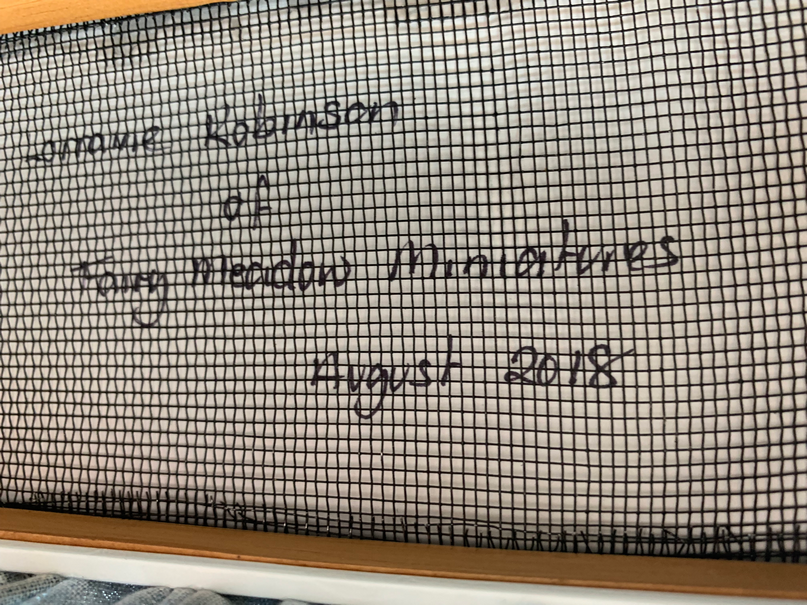 Lorraine Robinson
of
Fairy Meadow Miniatures
August 2018